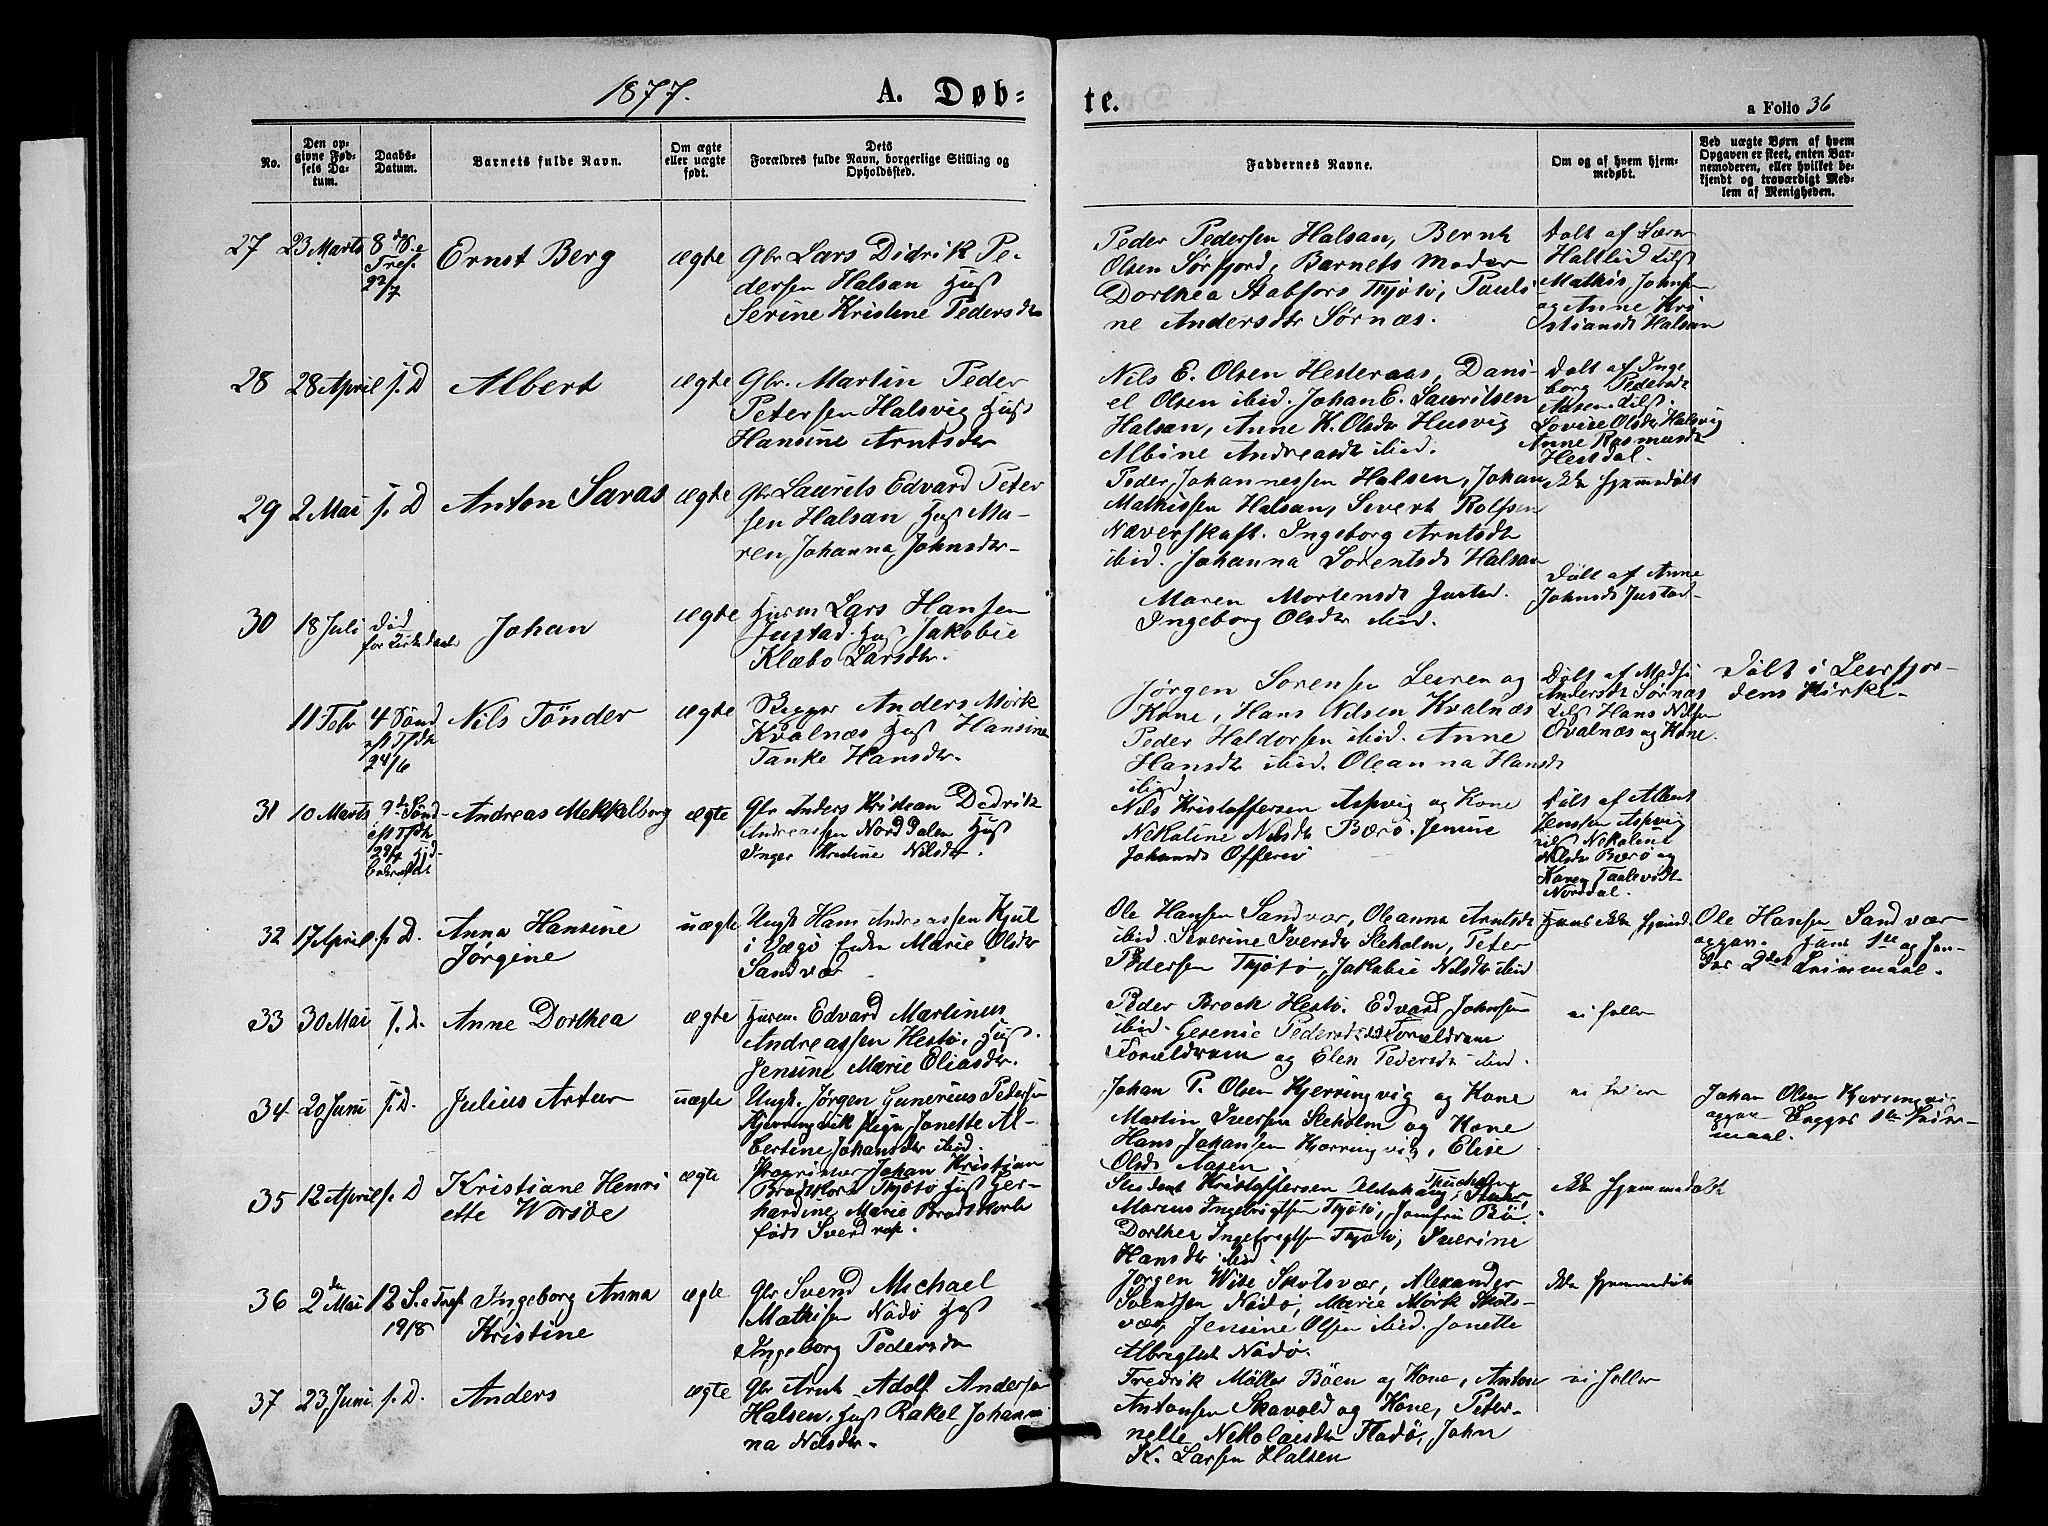 1877.
A. Døb-
te.
a Folio 36
No.
Den op-
givne Fød-
sels Da-
tum.
Daabs-
Datum.
Barnets fulde Navn.
Om ægte
eller uægte
født.
Dets
Forældres fulde Navn, borgerlige Stilling og
Opholdssted.
Faddernes Navne.
Om og af hvem hjem-
medøbt.
Ved uægte Børn af hvem
Opgaven er skeet, enten Bar-
nemoderen, eller hvilket be-
kjendt og troværdigt Med-
lem af Menigheden.
27 23 Marts 8de S. e Tref. 22/7 Ernst Berg ægte
Gbr Lars Didrik Pe-
dersen Halsan Hust
Serine Kristine Pedersdr
Peder Pedersen Halsan, Bernt
Olsen Sørfjord, Barnets Moder
Dorthea Stabfors Thjøtø, Pauli
ne Andersdtr Sørnæs.
Døbt af
Mathis Johnsen
og Anne Kri
stiansdt Halsan
28 28 April s. D Albert ægte
Gbr. Martin Peder
Petersen Halsvig Hust
Hansine Arntsdtr
Nils E. Olsen Hesteraas, Dani-
el Olsen ibid. Johan E. Lauritsen
Halsan, Anne K. Olsdtr Husvig
Albine Andreasdt ibid.
Døbt af Inge
borg Pedersdt
Aasen tilst.
Lovise Olsdtr Halsvig
Anne Rasmusdt
Hestdal.
29 2 Mai s. D Anton Savas ægte
Gbr Laurits Edvard Peter
sen Halsan Hust Ma-
ren Johanna Johnsdtr
Peder Johannessen Halsen, Johan
Mathissen Halsan, Sivert Rolfsen
Næverskaft. Ingeborg Arntsdt
ibid. Johanna Lorentsdt Halsan
ikke hjemmedøbt
30 18 Juli Død Johan ægte
Husm Lars Hansen
Justad. Hust Jakobie
Klæbo Larsdtr.
Maren Mortensdt Justad.
Ingeborg Olsdtr ibid.
Døbt af Anne
Johnsdt Justad
11 Febr 4 Sønd 24/6 Nils Tønder ægte
Anders Mørk
Kvalnæs Hust Hansine
Tanke Hansdtr.
Jørgen Sørensen Leiren og
Kone, Hans Nilsen Kvalnæs
Peder Haldorsen ibid. Anne
Hansdtr ibid. Oleanna Hansdt
ibid
Døbt af
Andersdt Sørnæs
tilst Hans Nilsen
Qvalnæs og Kone.
Døbt i Leirfjor-
dens Kirke
31 10 Marts 9de Sønd 29/7 Andreas Mekkelborg ægte
Gbr Anders Kristian Didrik
Andreassen Norddalen Hust
Inger Kristine Nilsdtr.
Nils Kristoffersen Aspvig og Kone
Nekoline Nilsdtr Bærø. Jensine
Døbt af Albert
Jensen Aspvig
tilst Nekoline
Nilsdtr Bærø og
Norddal.
32 17 April s. D. Anna Hansine
Jørgine uægte
Ungk Hans Andreassen Hjul
i Vegø Enke Marie Olsdtr
Sandvær
Ole Hansen Sandvær, Oleanna Arntsdt
ibid. Severine Iversdtr Sleholm, Peter
Pedersen Thjøtø, Jakobie Nilsdt ibid
Ole Hansen Sandvær
opgav. Hans 1ste og Hen-
des 2det Leiermaal.
33 30 Mai s. D. Anne Dorthea ægte
Husm. Edvard Martinus
Andreassen Hestø. Hust.
Jensine Marie Eliasdtr.
Peder Brock Hestø. Edvard Johnsen
ibid. Gesenie Pedersdt
Forældrene og Elen Pedersdt ibid.
ei heller
34 20 Juni s. D. Julius Artur uægte
Ungk. Jørgen Gunerius Pedersen
Kjerringvik Pige Janette Al-
bertine Johansdtr ibid
Johan P. Olsen Kjerringvig og Kone
Martin Iversen Sleholm og Kone
Hans Johansen Kjerringvig, Elise
Olsdt Aasen
ei heller
Johan Olsen Kjerringvig
opgav Begges 1ste Leier-
maal.
35 12 April s. D Kristiane Henri
ette Worsøe ægte
Johan Kristian
Brodtkorb Thjøtø Hust Ger-
hardine Marie Brodtkorb
født Sverdrup.
Student Kristoffersen
Marius Ingebrigtsen Thjøtø, Jomfru Bø.
Dorthea Ingebrigtsen Thjøtø, Iverine
Hansdtr ibid.
ikke hjemmedøbt
36 2den Mai 12 S. e Tref. 19/8 Ingeborg Anna
Kristine ægte
Gbr Svend Michael
Mathisen Nådø Hust
Ingeborg Pedersdtr
Jørgen Wise Skotsvær, Alexander
Svendsen Nådø, Marie Mørk Skots-
vær, Jensine Olsen ibid. Janette
Albrigtsdt Nådø.
ikke hjemmedøbt
37 23 Juni s. D. Anders ægte
Gbr Arnt Adolf Andersen
Halsen, Hust Rakel Johan-
na Nilsdtr.
Fredrik Møller Bøen og Kone, Anton
Antonsen Skavold og Kone, Peter-
nelle Nikolaisdtr Fladø, John
K. Larsen Halsen
ei heller